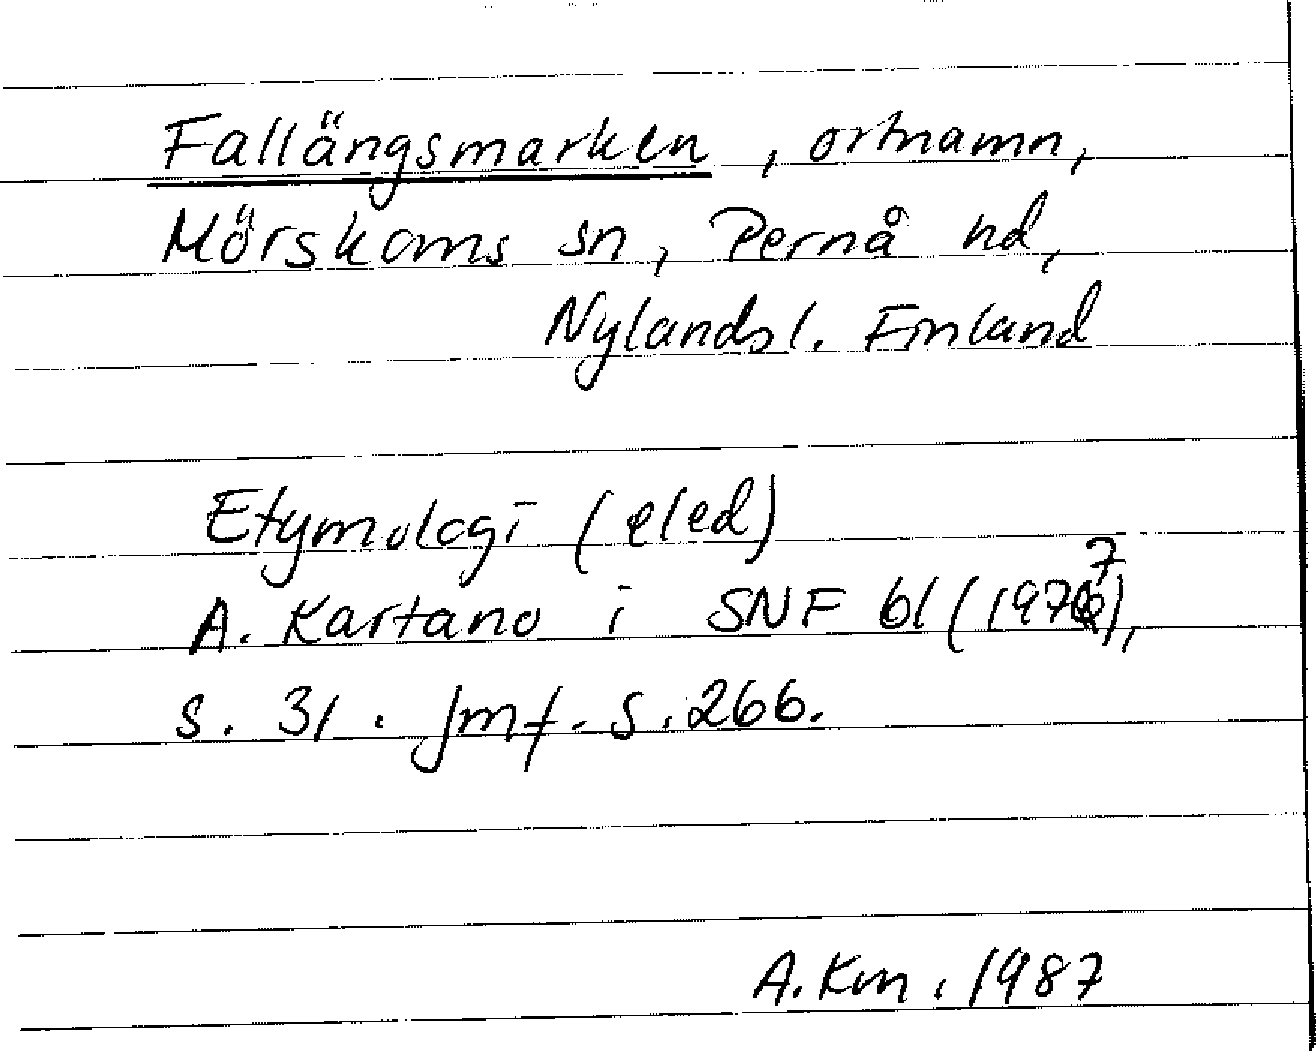 Fallängsmarken, ortnamn,
Mörskoms sn, Pernå hd,
Nylandsl. Finland
Etymologi (eled)
A. Kartano i SNF 61 (1977),
s. 31. Jmf. s. 266.
A. Km. 1987